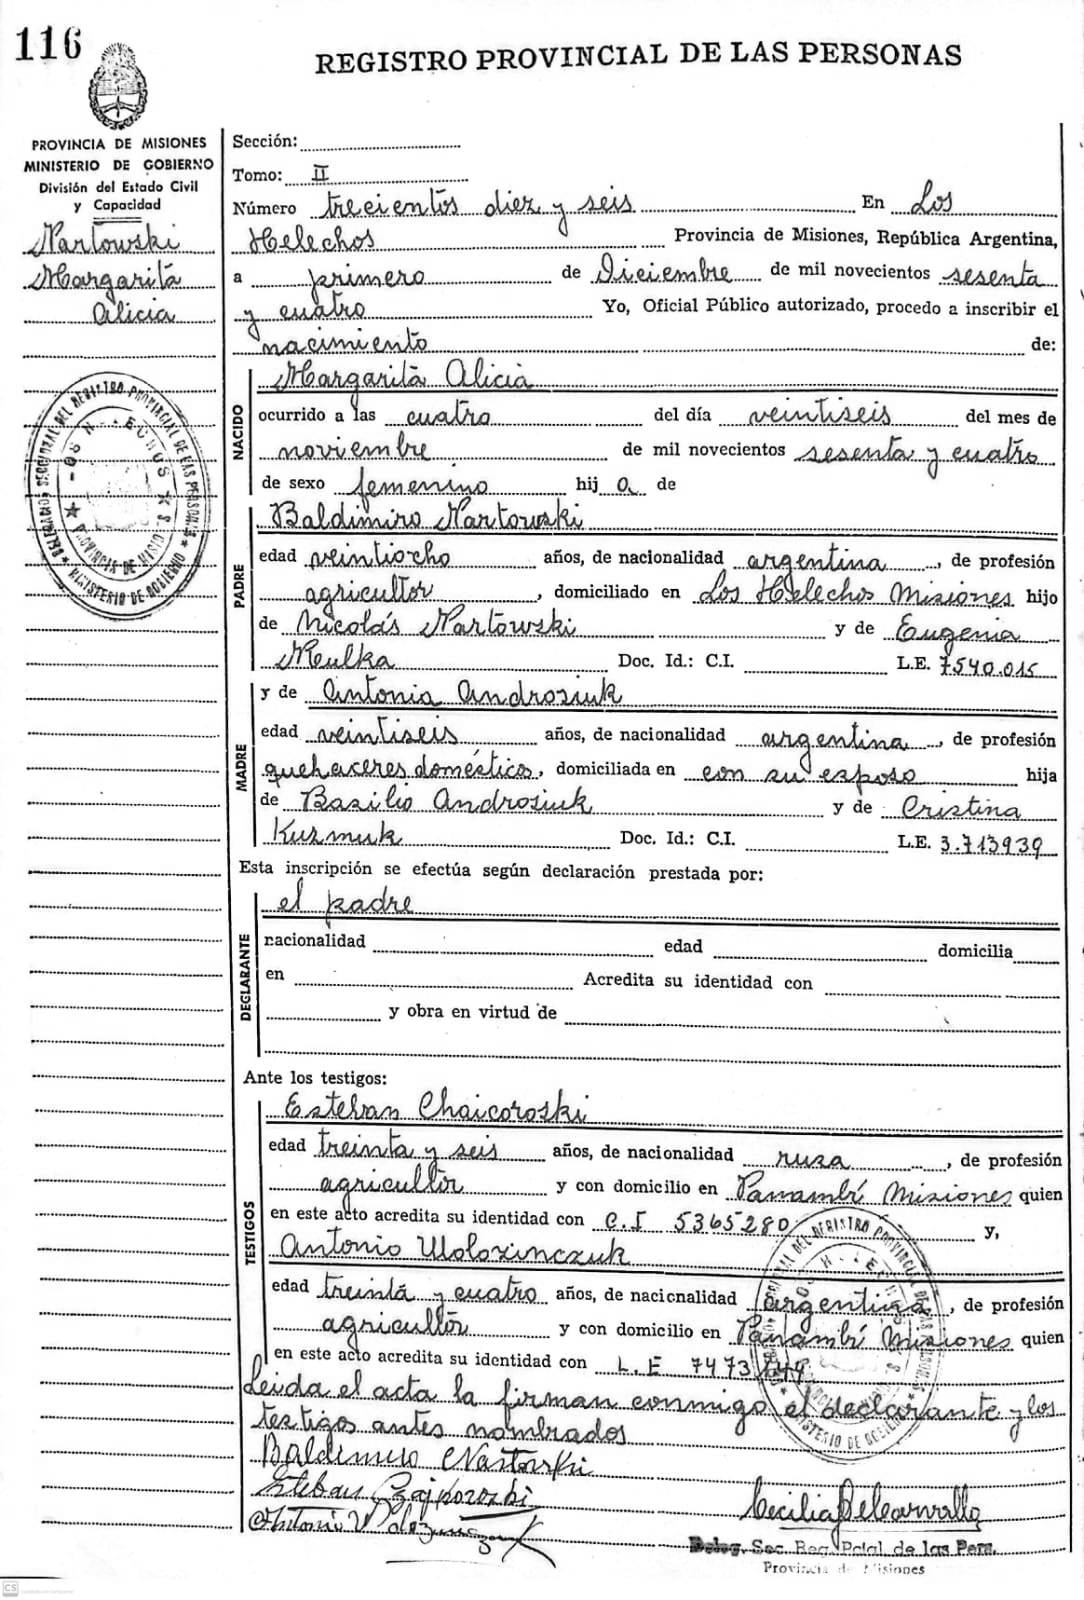 116
REGISTRO PROVINCIAL DE LAS PERSONAS
PROVINCIA DE MISIONES
MINISTERIO DE GOBIERNO
División del Estado Civil
y Capacidad
Nartowski
Margarita
Alicia
Sección:
Tomo: II
Número trecientos diez y seis En Los
Helechos Provincia de Misiones, República Argentina,
a primero de Diciembre de mil novecientos sesenta
y cuatro Yo, Oficial Público autorizado, procedo a inscribir el
nacimiento de:
NACIDO
Margarita Alicia
ocurrido a las cuatro del día veintiseis del mes de
noviembre de mil novecientos sesenta y cuatro
de sexo femenino hij a de
PADRE
Baldimiro Nartowski
edad veintiocho años, de nacionalidad argentina, de profesión
agricultor, domiciliado en Los Helechos Misiones hijo
de Nicolás Nartowski y de Eugenia
Meulka Doc. Id.: C.I. L.E. 7540.015
MADRE
y de Antonia Androsiuk
edad veintiseis años, de nacionalidad argentina, de profesión
quehaceres domésticos, domiciliada en con su esposo hija
de Basilio Androsiuk y de Cristina
Kuzmuk Doc. Id.: C.I. L.E. 3.713939
Esta inscripción se efectúa según declaración prestada por:
DECLARANTE
el padre
nacionalidad edad domicilia
en Acredita su identidad con
y obra en virtud de
Ante los testigos:
TESTIGOS
Esteban Chaicoroski
edad treinta y seis años, de nacionalidad rusa, de profesión
agricultor y con domicilio en Panambí Misiones quien
en este acto acredita su identidad con C.I 5365280 y,
Antonio Woloszinczuk
edad treinta y cuatro años, de nacionalidad argentina, de profesión
agricultor y con domicilio en Panambí Misiones quien
en este acto acredita su identidad con L.E 7473
Leida el acta la firman conmigo el declarante y los
testigos antes nombrados
Baldimiro Nartowski
Esteban
Antonio
Cecilia
Deleg. Sec. Reg. Pcial de las Pers.
Provincia de Misiones